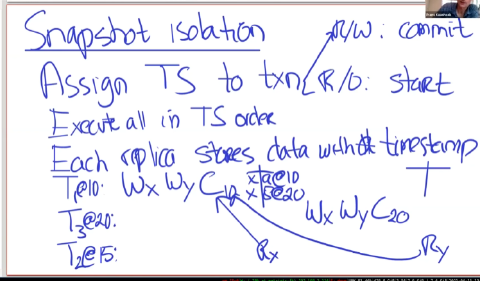 Snapshot isolation
Assign TS to txn R/W: commit
R/O: start
Execute all in TS order
Each replica stores data with timestamp
T1@10: Wx Wy C10 x a@10
x @20
Wx Wy C20
T3@20:
T2@15: Rx Ry